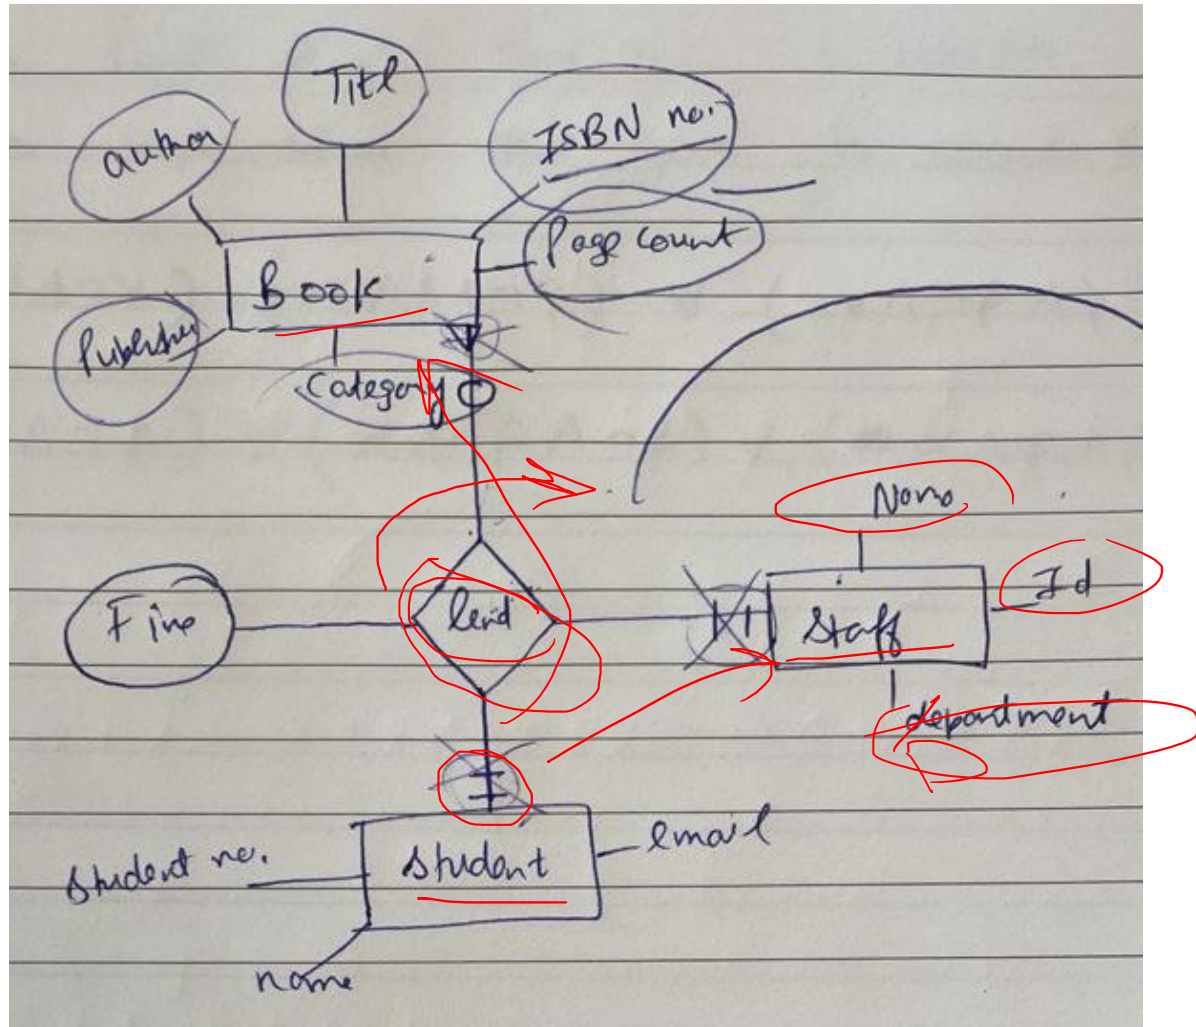 Titl
author
ISBN no.
Page count
Book
Publisher
Category
Name
Id
Fine
lend
Staff
department
Student no.
Student
email
name